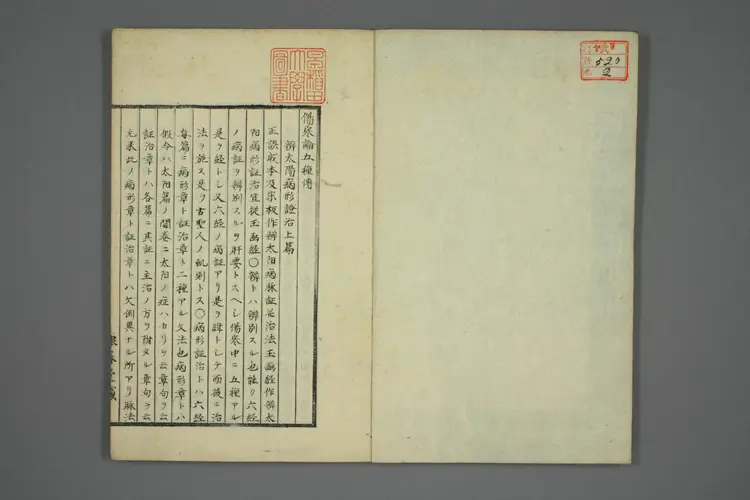 傷寒論五種傳
辨太陽病形證治上篇
正誤成本及宋板作辨太阳病脉証并治法玉函經作辨太
阳病形証治宜從玉函經〇辨トハ辨别スル也能ク六經
ノ病証ヲ辨别スルヲ肝要トスヘシ傷寒中ニ五種アル
是ヲ經トシ又六經ノ病証アリ是ヲ緯トシテ而後ニ治
法ヲ施ス是ヲ古聖人ノ規則トス〇病形証治トハ六經
每篇ニ病形章ト証治章ト二種アル文法也病形章トハ
假令ハ太阳篇ノ開卷ニ太阳ノ症ハカリヲ云章句ヲ云
証治章トハ各篇ニ其証ニ主治ノ方ヲ附スル章句ヲ云
元來此ノ病形章ト証治章トハ文例異ナル所アリ脉法
早稲田大學圖書
520
2